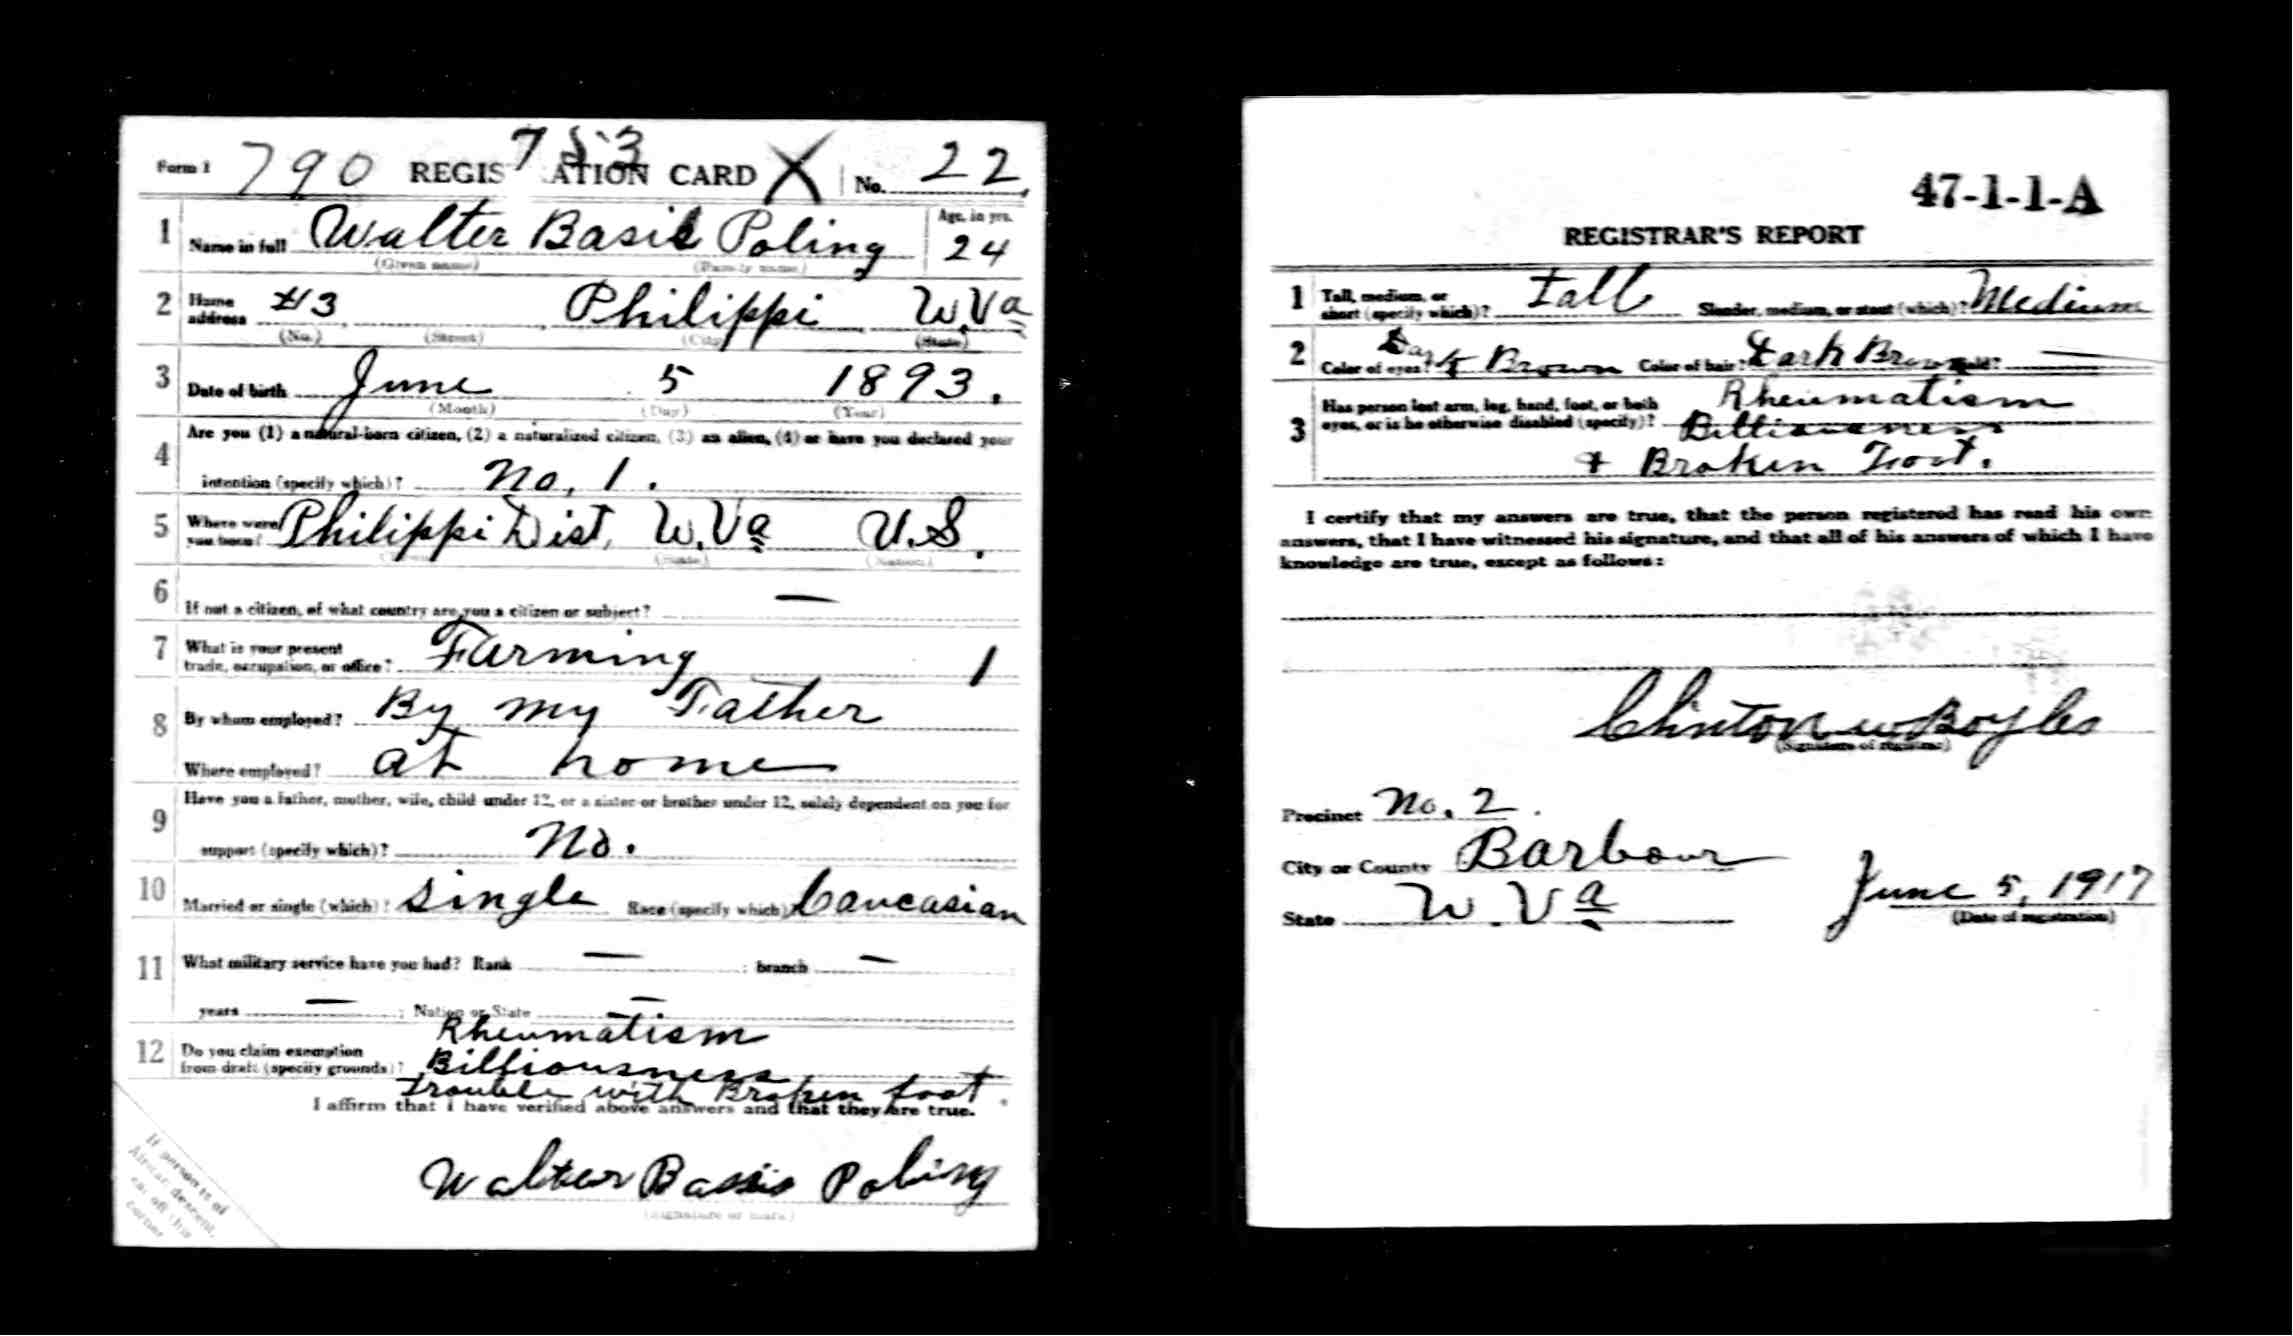 Form 1 790 REGIS 753 ATION CARD X No. 22.
1 Name in full Walter Basil Poling Age, in yrs. 24
(Given name) (Family name)
2 Home address #3 Philippi W.Va
(No.) (Street) (City) (State)
3 Date of birth June 5 1893.
(Month) (Day) (Year)
4 Are you (1) a natural-born citizen, (2) a naturalized citizen, (3) an alien, (4) or have you declared your
intention (specify which)? No, 1.
5 Where were you born? Philippi Dist, W.Va U.S.
(State) (Nation)
6 If not a citizen, of what country are you a citizen or subject? —
7 What is your present trade, occupation, or office? Farming 1
8 By whom employed? By my Father
Where employed? at home
9 Have you a father, mother, wife, child under 12, or a sister or brother under 12, solely dependent on you for
support (specify which)? No.
10 Married or single (which)? single Race (specify which)? Caucasian
11 What military service have you had? Rank — ; branch —
years — ; Nation or State —
12 Do you claim exemption from draft (specify grounds)? Rheumatism
Billiousness
trouble with Broken foot.
I affirm that I have verified above answers and that they are true.
Walter Basio Poling
(Signature or mark)
If person is of
African descent,
cut off this
corner
47-1-1-A
REGISTRAR'S REPORT
1 Tall, medium, or short (specify which)? Tall Slender, medium, or stout (which)? Medium
2 Color of eyes? Dark Brown Color of hair? Dark Brown Bald? —
3 Has person lost arm, leg, hand, foot, or both eyes, or is he otherwise disabled (specify)? Rheumatism
Billiousness
+ Broken Foot.
I certify that my answers are true, that the person registered has read his own
answers, that I have witnessed his signature, and that all of his answers of which I have
knowledge are true, except as follows:
Clinton W Boyles
(Signature of registrar)
Precinct No. 2.
City or County Barbour
State W.Va June 5, 1917
(Date of registration)